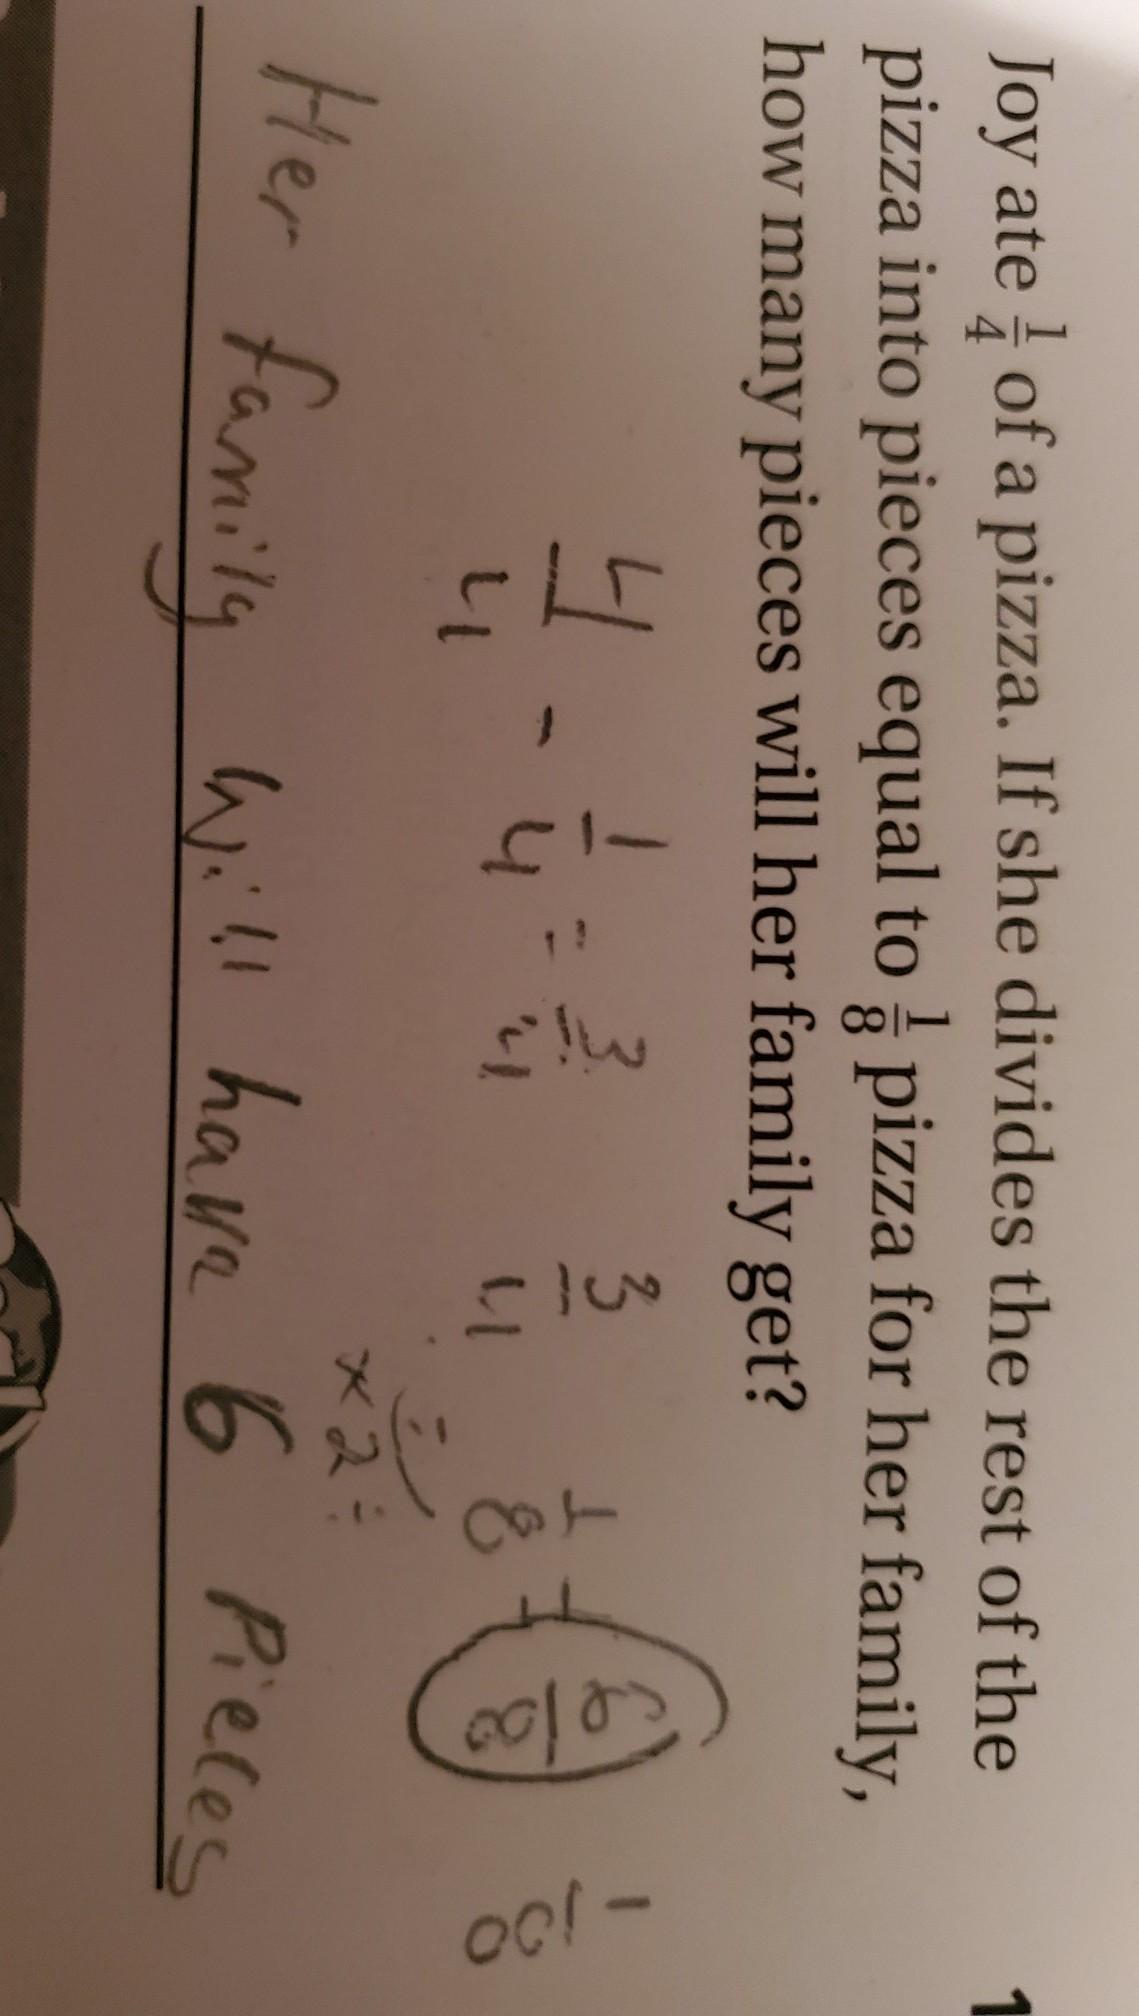 Joy ate 1/4 of a pizza. If she divides the rest of the
pizza into pieces equal to 1/8 pizza for her family,
how many pieces will her family get?
1
4/4 - 1/4 = 3/4 3/4 1/8 = 6/8 1/8
=
x2=
Her family will have 6 Pieces